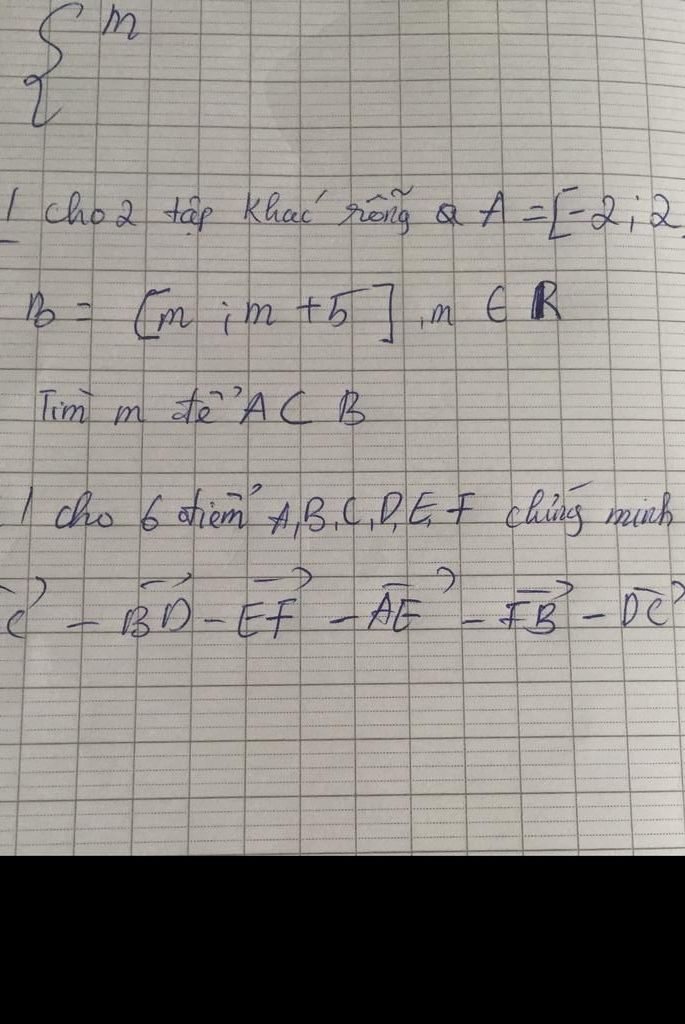 { m
1 cho 2 tập khác rỗng A = [-2; 2
B = [m ; m + 5], m ∈ R
Tìm m để A ⊂ B
1 cho 6 điểm A, B, C, D, E, F chứng minh
C⃗ - BD⃗ - EF⃗ - AE⃗ - FB⃗ - DC⃗